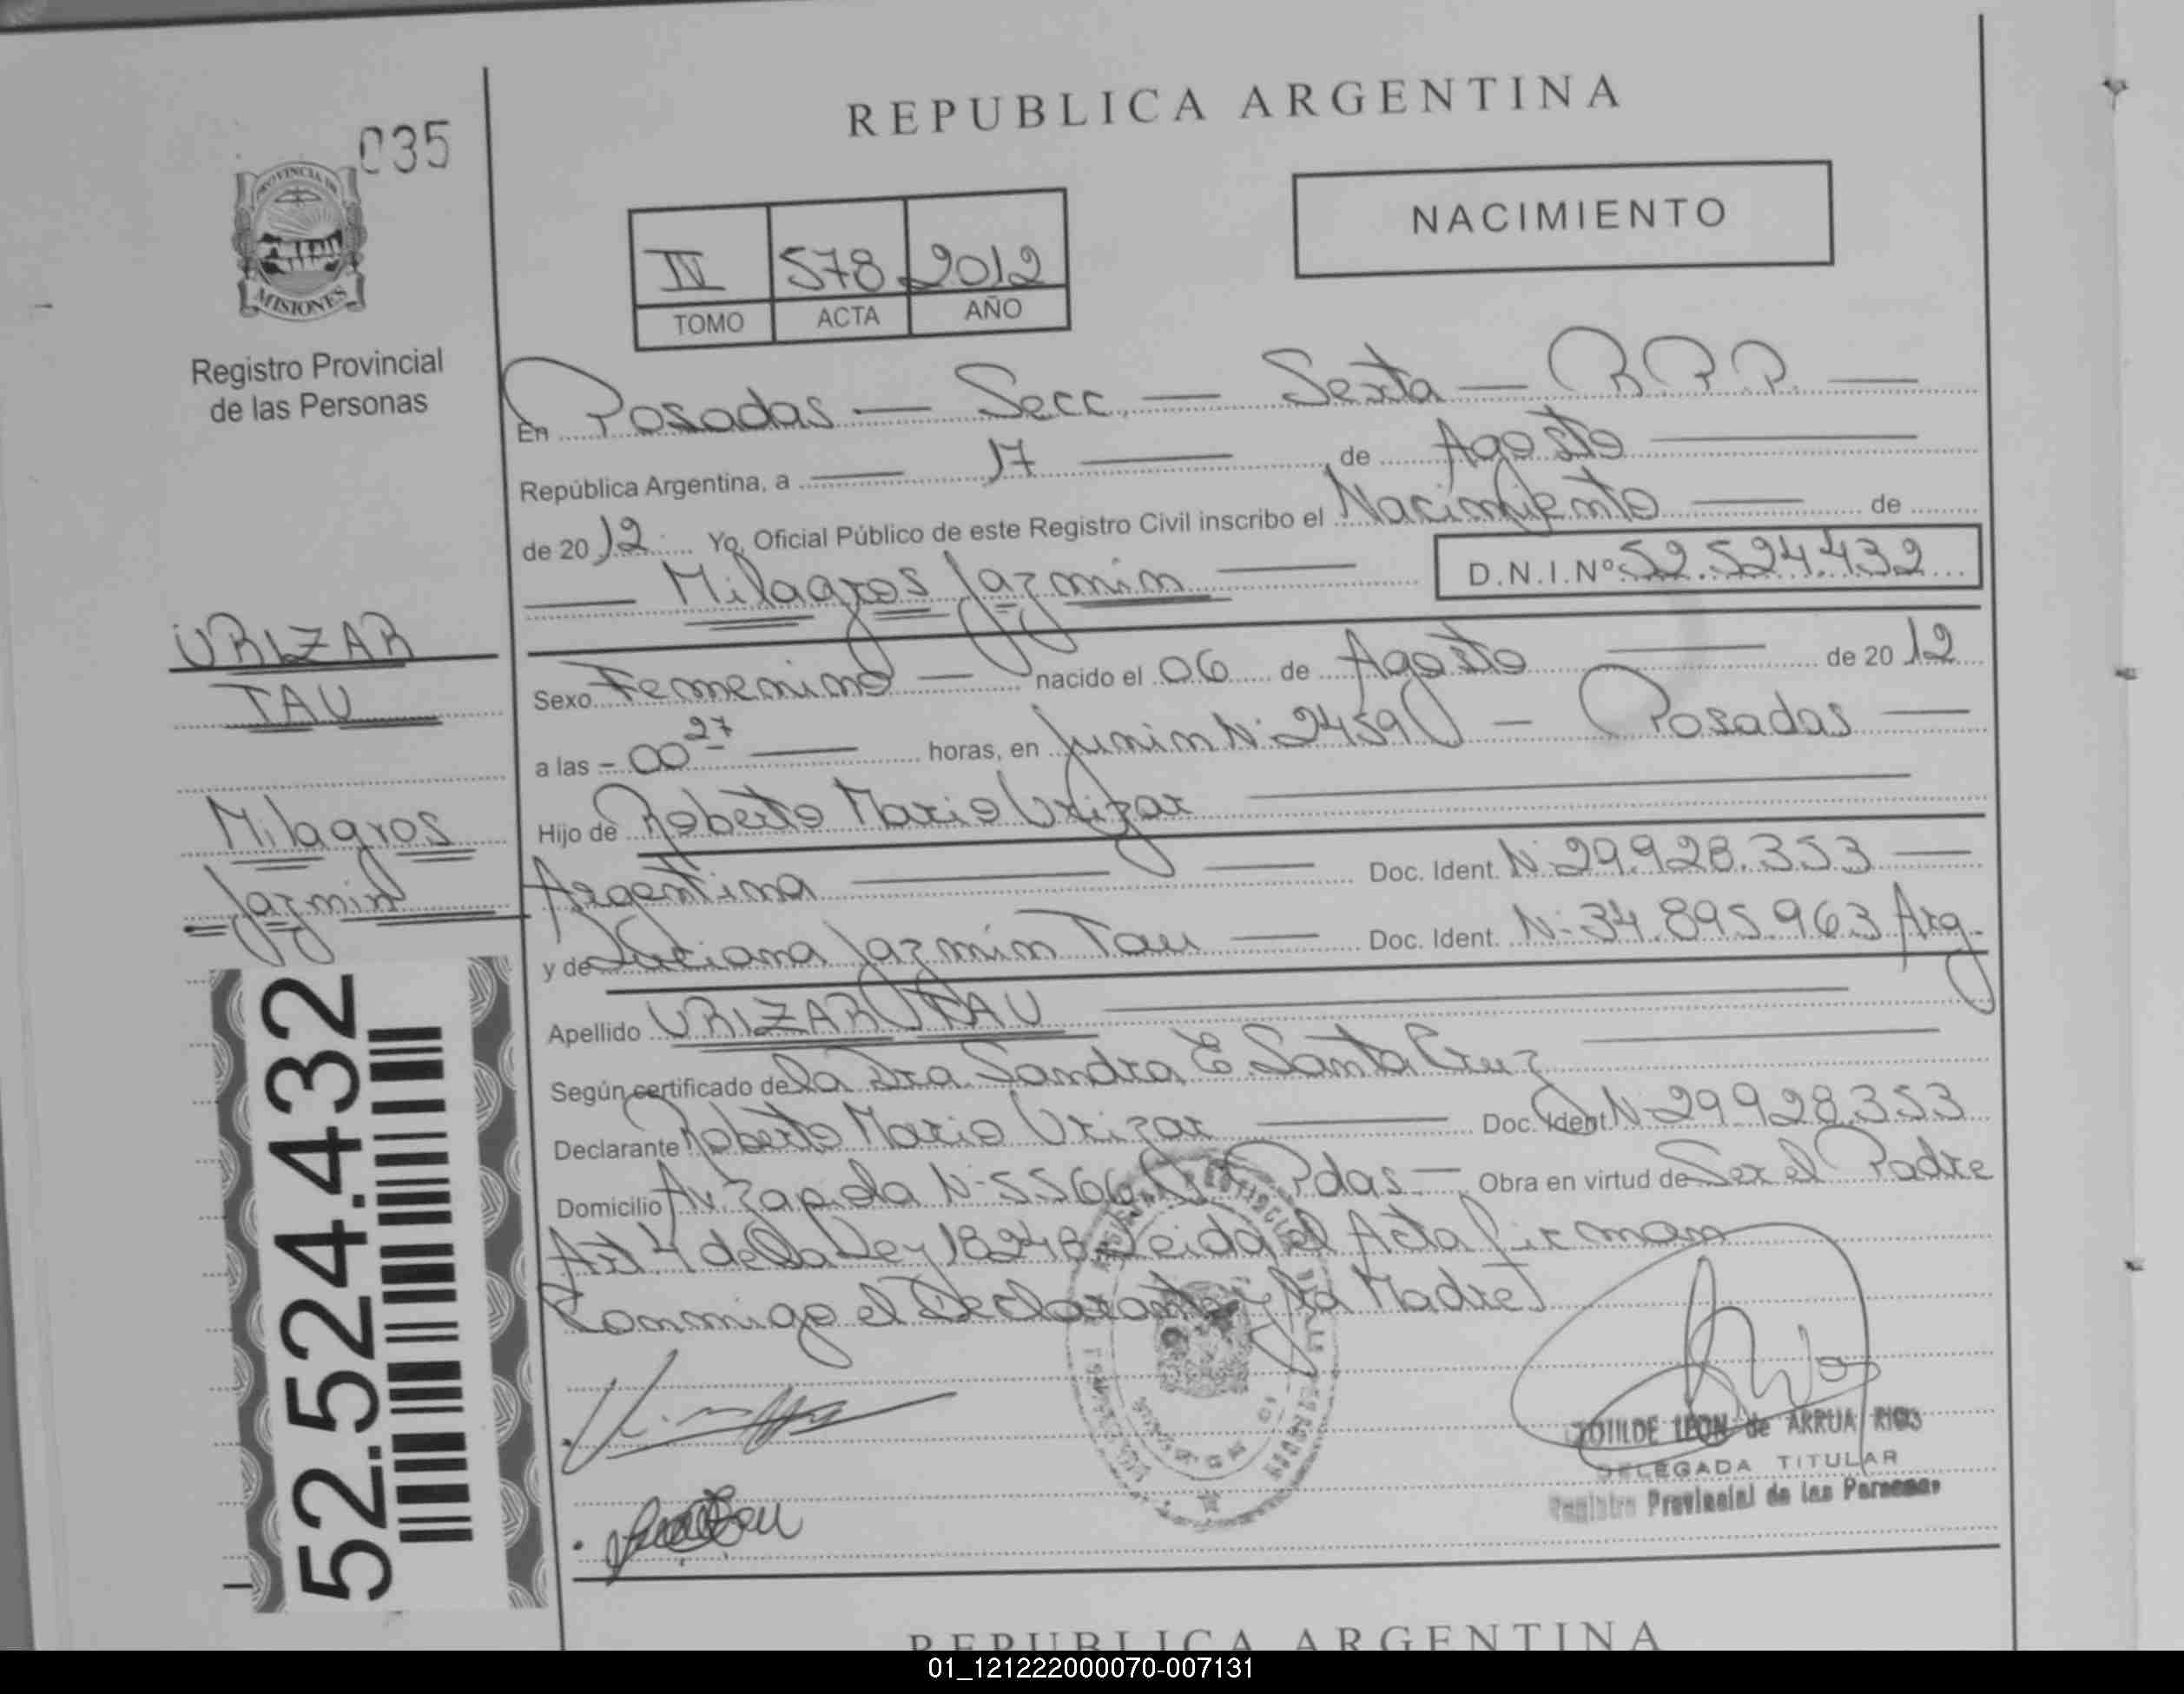 REPUBLICA ARGENTINA
035
PROVINCIA DE
MISIONES
NACIMIENTO
IV 578 2012
TOMO ACTA AÑO
Registro Provincial
de las Personas
En Posadas — Secc. — Sexta — R.P.P. —
República Argentina, a — 17 — de Agosto —
de 2012. Yo, Oficial Público de este Registro Civil inscribo el Nacimiento — de
— Milagros Jazmin — D.N.I.Nº 52.524.432
URIZAR
TAU
Milagros
Jazmin
Sexo Femenino — nacido el 06 de Agosto — de 2012
a las = 00 27 — horas, en Junin Nº 2459 — Posadas —
Hijo de Roberto Mario Urizar —
Argentina — Doc. Ident. Nº 29.928.353 —
y de Tatiana Jazmin Tau — Doc. Ident. Nº 34.895.963 Arg.
Apellido URIZAR TAU —
Según certificado de la Dra. Sandra E. Santa Cruz —
Declarante Roberto Mario Urizar — Doc. Ident Nº 29.928.353
Domicilio Av. Zapiola Nº 5566 Pdas. — Obra en virtud de Ser el Padre
Art. 4 de la Ley 18248 Leida el Acta firman
Conmigo el Declarante y la Madre
52.524.432
de ARRUA RIOS
DELEGADA TITULAR
Registro Provincial de las Personas
REPUBLICA ARGENTINA
01_121222000070-007131